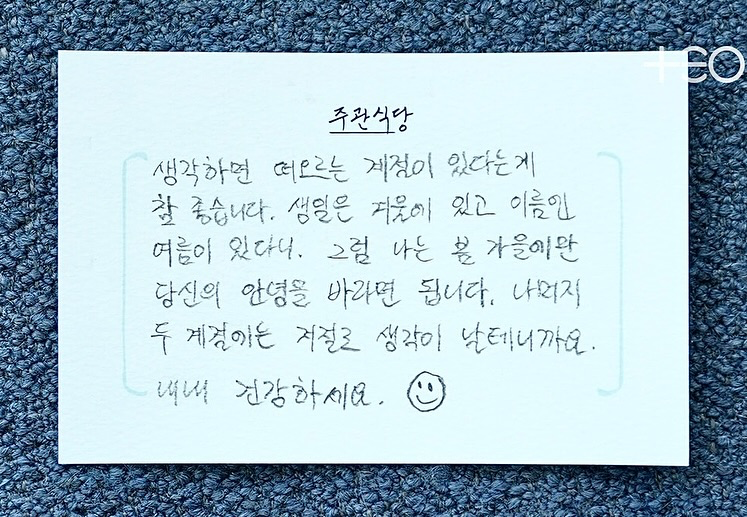 TEO
주관식당
생각하면 떠오르는 계절이 있다는게
참 좋습니다. 생일은 겨울에 있고 이름엔
여름이 있다니. 그럼 나는 봄 가을에만
당신의 안녕을 바라면 됩니다. 나머지
두 계절에는 저절로 생각이 날테니까요.
내내 건강하세요.